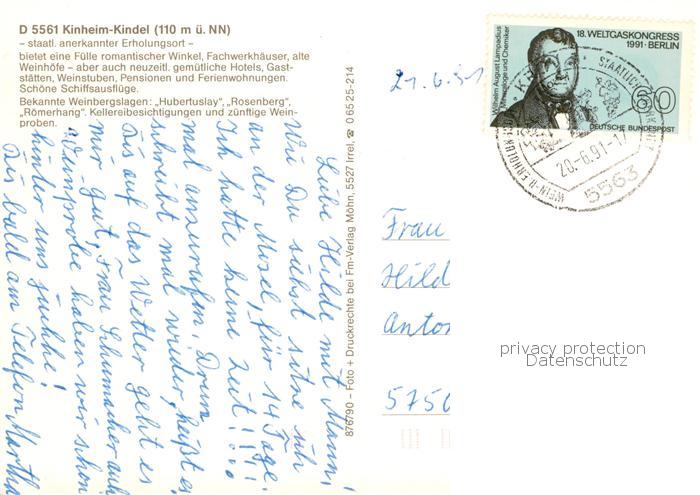 D 5561 Kinheim-Kindel (110 m ü. NN)
– staatl. anerkannter Erholungsort –
bietet eine Fülle romantischer Winkel, Fachwerkhäuser, alte
Weinhöfe – aber auch neuzeitl. gemütliche Hotels, Gast-
stätten, Weinstuben, Pensionen und Ferienwohnungen.
Schöne Schiffsausflüge.
Bekannte Weinbergslagen: „Hubertuslay“, „Rosenberg“,
„Römerhang“. Kellereibesichtigungen und zünftige Wein-
proben.
Liebe Hilde mit Mann!
Wie Du siehst sitze ich
an der Mosel, für 14 Tage.
Ich hatte keine Zeit!!!
mal anzurufen. Drum
schreibt mal wieder, heißt es
bis auf das Wetter geht es
mir gut, Frau Schumacher auch
Weinprobe haben wir schon
hinter uns juchhe!
Bis bald am Telefon Martha
876790 – Foto + Druckrechte bei Fm-Verlag Möhn, 5527 Irrel, ☎ 06525-214
21.6.91
18. WELTGASKONGRESS
1991 · BERLIN
Wilhelm August Lampadius
Hüttenkundler und Chemiker
60
DEUTSCHE BUNDESPOST
STAATLICH
WEIN- U. ERHOLUNGS
20.-6.91-17
5563
Frau
Hild
Anton
5750
privacy protection
Datenschutz